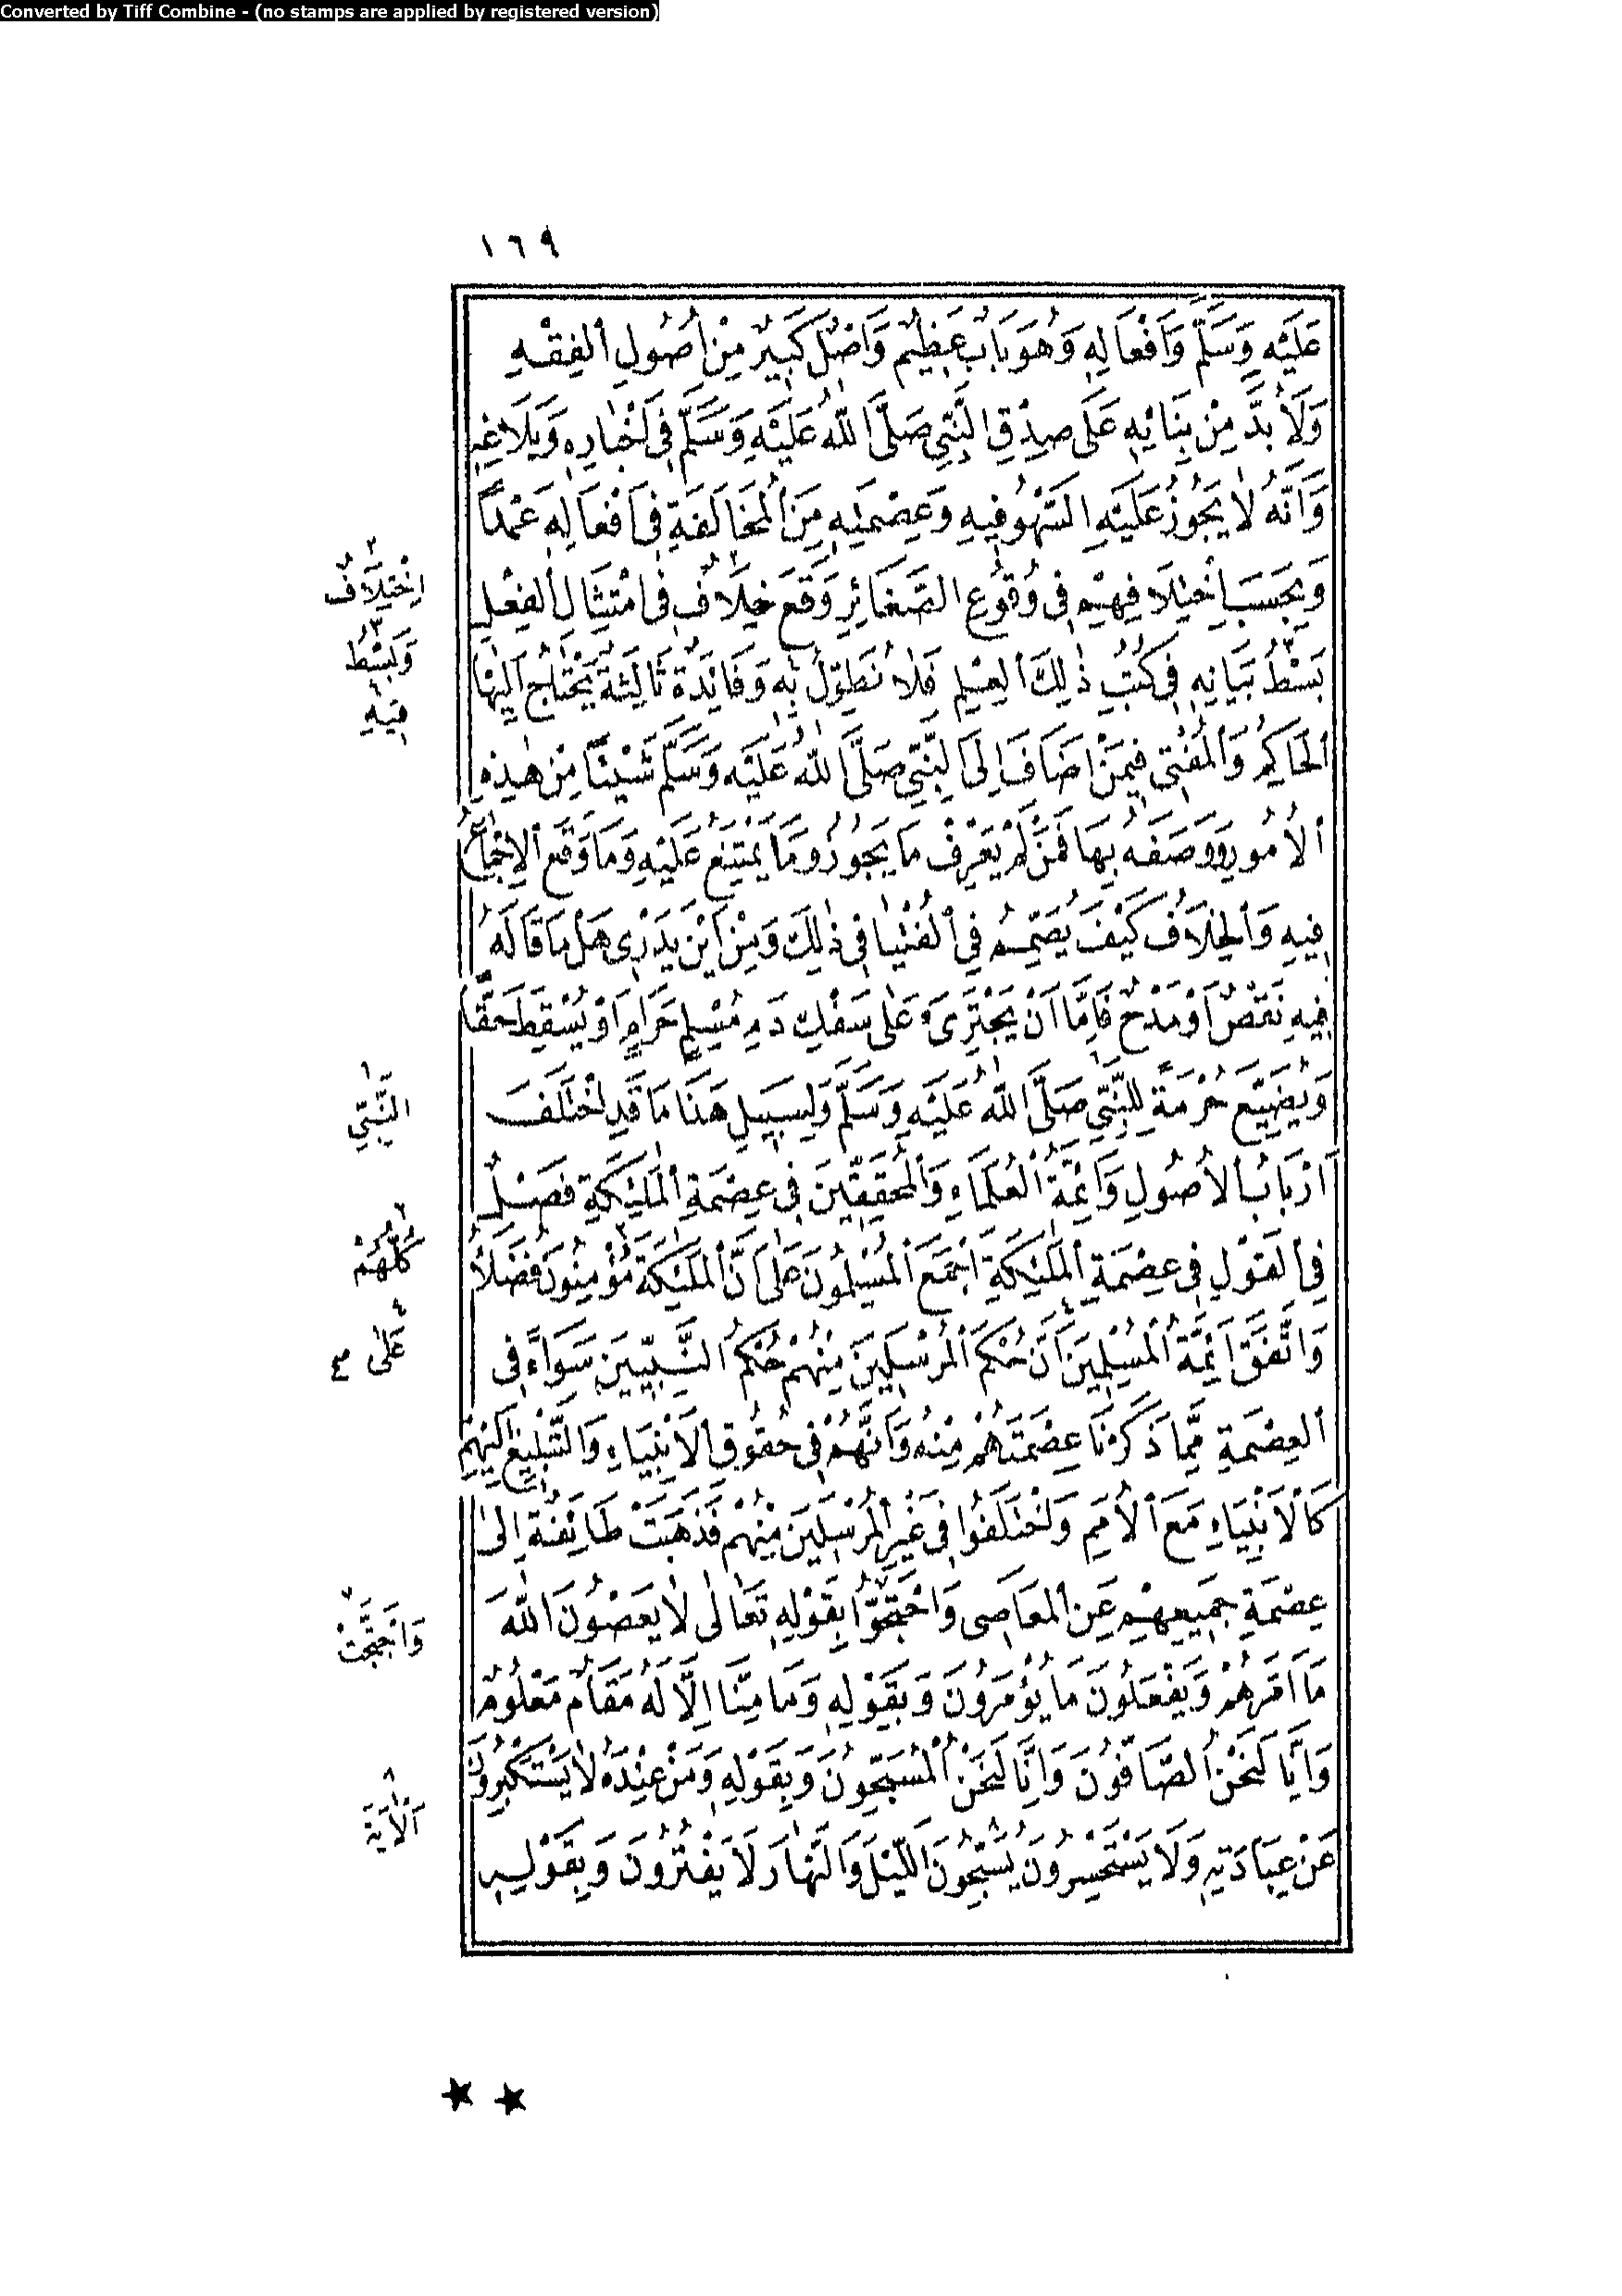 Converted by Tiff Combine - (no stamps are applied by registered version)
١٦٩
عَلَيْهِ وَسَلَّمَ وَاَفْعَالِهِ وَهُوَ بَابٌ عَظِيمٌ وَاَصْلٌ كَبِيرٌ مِنْ اُصُولِ الْفِقْهِ
وَلَا بُدَّ مِنْ بِنَائِهِ عَلَى صِدْقِ النَّبِيِّ صَلَّى اللهُ عَلَيْهِ وَسَلَّمَ فِى اَخْبَارِهِ وَبَلَاغِهِ
وَاَنَّهُ لَا يَجُوزُ عَلَيْهِ السَّهْوُ فِيهِ وَعِصْمَتِهِ مِنَ الْمُخَالَفَةِ فِى اَفْعَالِهِ عَمْدًا
وَبِحَسَبِ اخْتِلَافِهِمْ فِى وُقُوعِ الصَّغَائِرِ وَقَعَ خِلَافٌ٢ فِى امْتِثَالِ الْفِعْلِ
بَسْطُ٣ بَيَانِهِ فِى كُتُبِ ذٰلِكَ الْعِلْمِ فَلَا نُطَوِّلُ بِهِ وَفَائِدَةٌ ثَالِثَةٌ يَحْتَاجُ اِلَيْهَا
الْحَاكِمُ وَالْمُفْتِى فِيمَنْ اَضَافَ اِلَى النَّبِيِّ صَلَّى اللهُ عَلَيْهِ وَسَلَّمَ شَيْئًا مِنْ هٰذِهِ
الْاُمُورِ وَوَصَفَهُ بِهَا فَمَنْ لَمْ يَعْرِفْ مَا يَجُوزُ وَمَا يَمْتَنِعُ عَلَيْهِ وَمَا وَقَعَ الْاِجْمَاعُ
فِيهِ وَالْخِلَافُ كَيْفَ يُصَمِّمُ فِى الْفُتْيَا فِى ذٰلِكَ وَمِنْ اَيْنَ يَدْرِى هَلْ مَا قَالَهُ
فِيهِ نَقْصٌ اَوْ مَدْحٌ فَاِمَّا اَنْ يَجْتَرِىَٔ عَلَى سَفْكِ دَمِ مُسْلِمٍ حَرَامٍ اَوْ يُسْقِطَ حَقًّا
وَيُضَيِّعَ حُرْمَةً لِلنَّبِيِّ صَلَّى اللهُ عَلَيْهِ وَسَلَّمَ وَلِسَبِيلِ هَذَا مَا قَدِ اخْتَلَفَ
اَرْبَابُ الْاُصُولِ وَاَئِمَّةُ الْعُلَمَاءِ وَالْمُحَقِّقِينَ فِى عِصْمَةِ الْمَلٰئِكَةِ فَصْلٌ
فِى الْقَوْلِ فِى عِصْمَةِ الْمَلٰئِكَةِ اَجْمَعَ الْمُسْلِمُونَ عَلَى اَنَّ الْمَلٰئِكَةَ٦ مُؤْمِنُونَ فُضَلَاءُ
وَاتَّفَقَ اَئِمَّةُ الْمُسْلِمِينَ٤ اَنَّ حُكْمَ الْمُرْسَلِينَ مِنْهُمْ حُكْمُ النَّبِيِّينَ سَوَاءً فِى
الْعِصْمَةِ مِمَّا ذَكَرْنَا عِصْمَتَهُمْ مِنْهُ وَاَنَّهُمْ فِى حُقُوقِ الْاَنْبِيَاءِ وَالتَّبْلِيغِ اِلَيْهِمْ
كَالْاَنْبِيَاءِ مَعَ الْاُمَمِ وَاخْتَلَفُوا فِى غَيْرِ الْمُرْسَلِينَ مِنْهُمْ فَذَهَبَتْ طَائِفَةٌ اِلَى
عِصْمَةِ جَمِيعِهِمْ عَنِ الْمَعَاصِى وَاحْتَجُّوا٧ بِقَوْلِهِ تَعَالٰى لَا يَعْصُونَ اللهَ
مَا اَمَرَهُمْ وَيَفْعَلُونَ مَا يُؤْمَرُونَ وَبِقَوْلِهِ وَمَا مِنَّا اِلَّا لَهُ مَقَامٌ مَعْلُومٌ
وَاِنَّا لَنَحْنُ الصَّافُّونَ وَاِنَّا لَنَحْنُ الْمُسَبِّحُونَ وَبِقَوْلِهِ وَمَنْ عِنْدَهُ لَا يَسْتَكْبِرُونَ
عَنْ عِبَادَتِهِ وَلَا يَسْتَحْسِرُونَ٨ يُسَبِّحُونَ اللَّيْلَ وَالنَّهَارَ لَا يَفْتُرُونَ وَبِقَوْلِهِ
٢
اِخْتِلَافٌ
٣
وَبَسْطُ
٦
فِيهِ
١
النَّبِيِّ
٦
كُلَّهُمْ
٤
عَلَى
٧
وَاحْتَجَّتْ
٨
اَلْاٰيَةَ